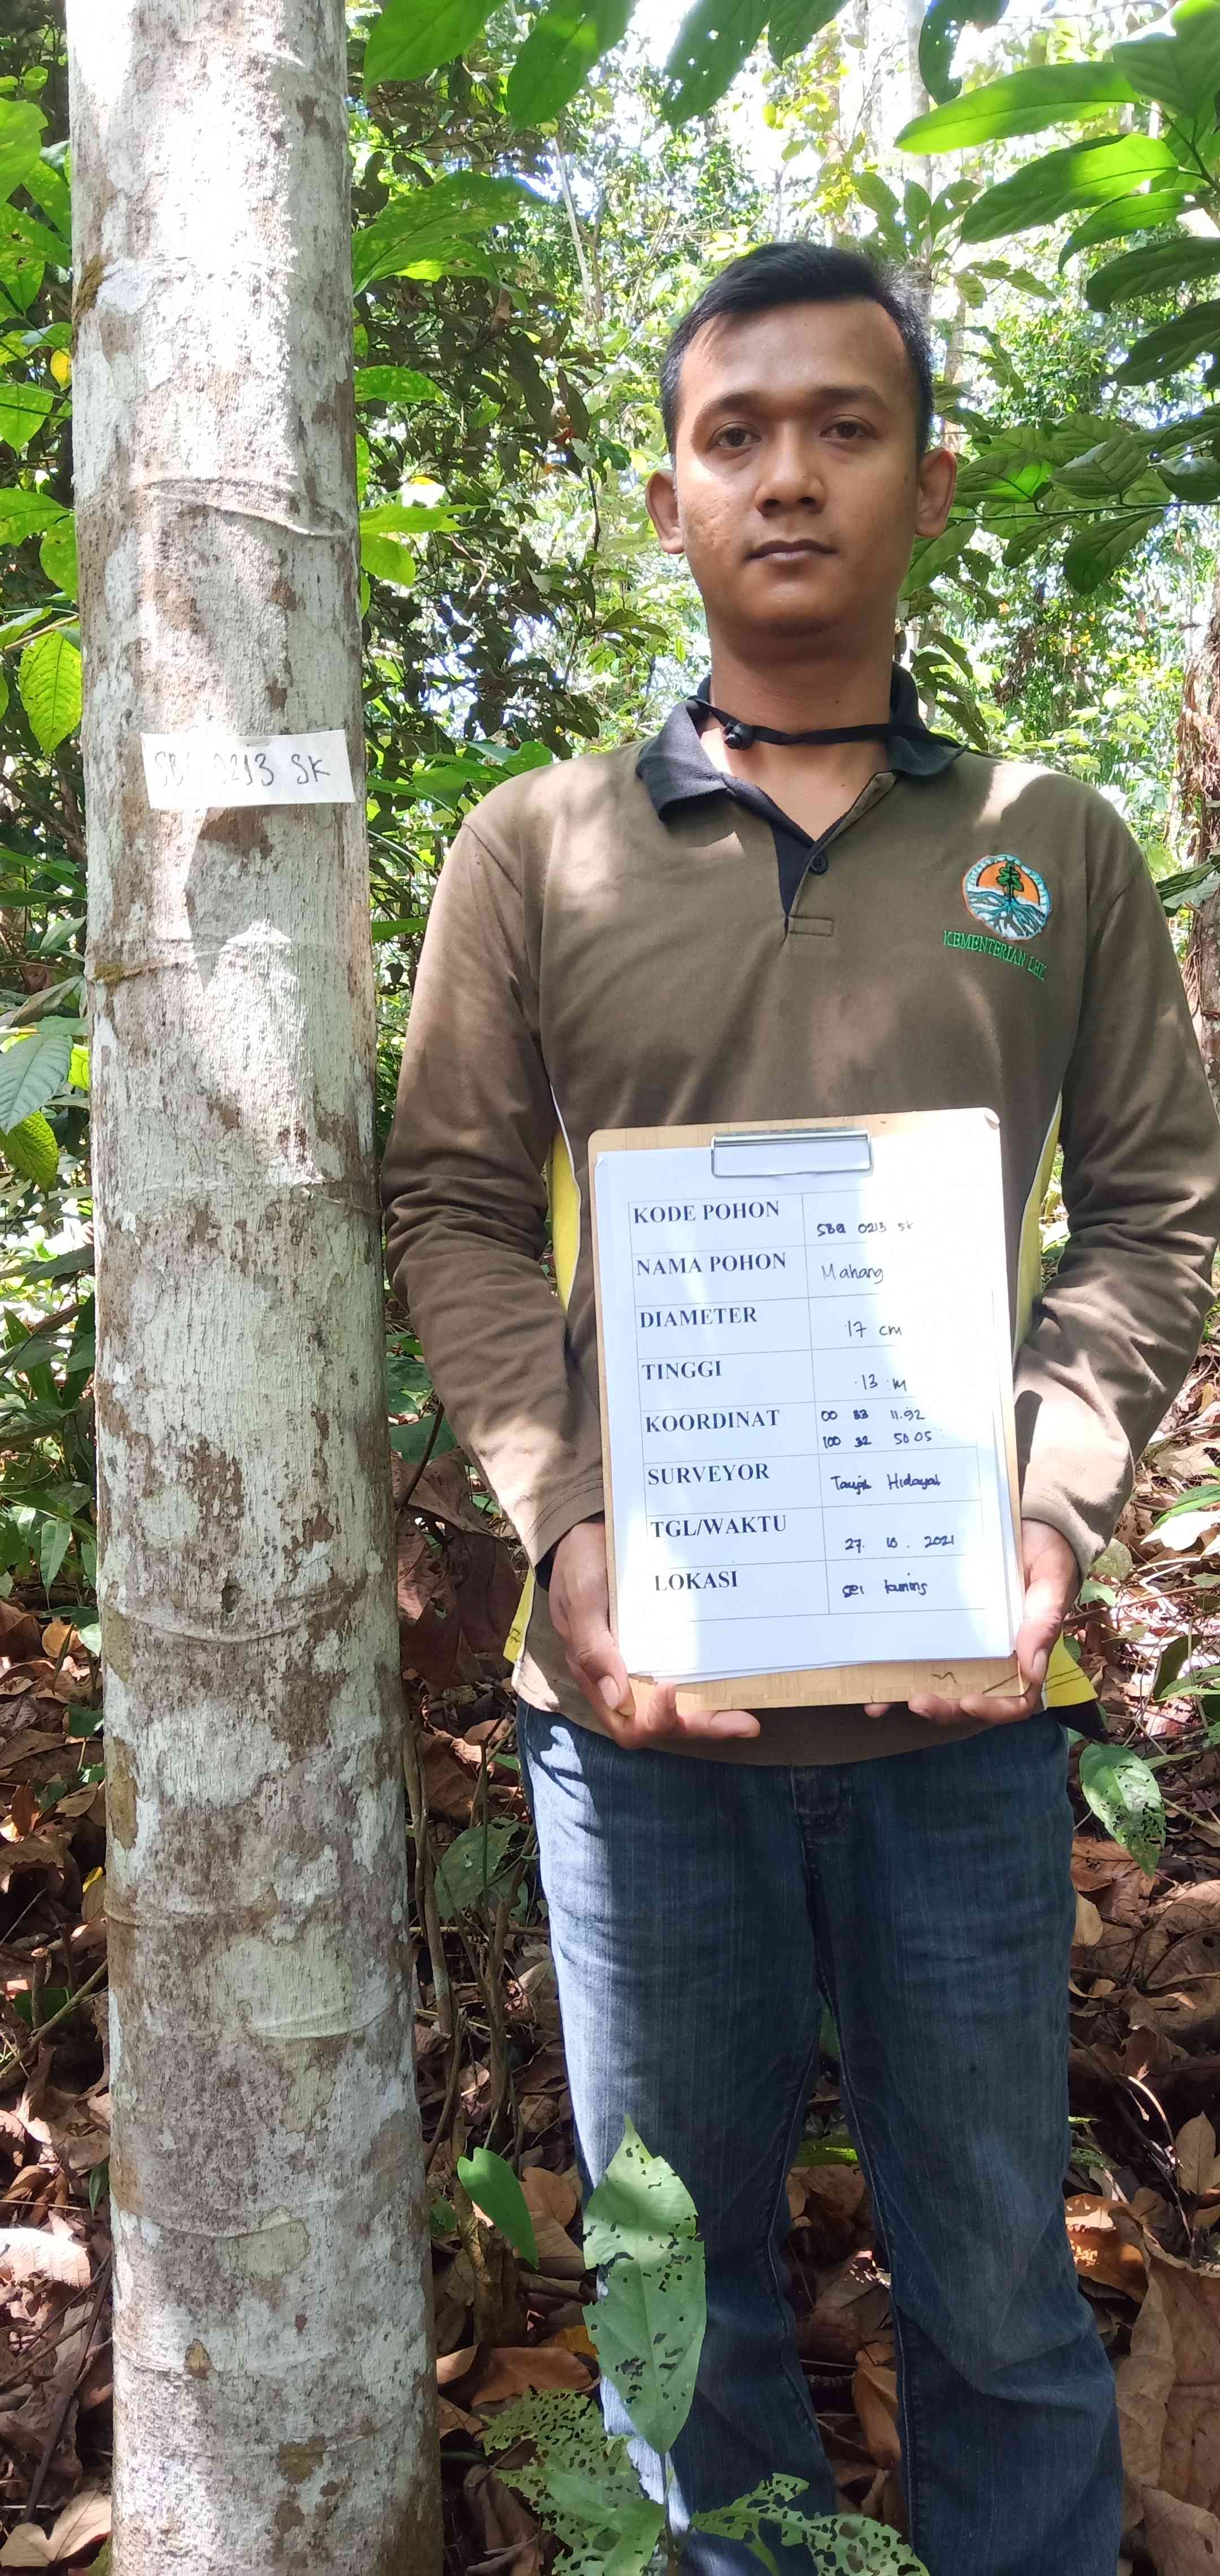 0213 SK
KEMENTERIAN LHK
KODE POHON
SBQ 0213 SK
NAMA POHON
Mahang
DIAMETER
17 cm
TINGGI
13 M
KOORDINAT
00 33 11.92
100 32 50 05
SURVEYOR
Hidayat
TGL/WAKTU
27. 10 . 2021
LOKASI
sei kuning